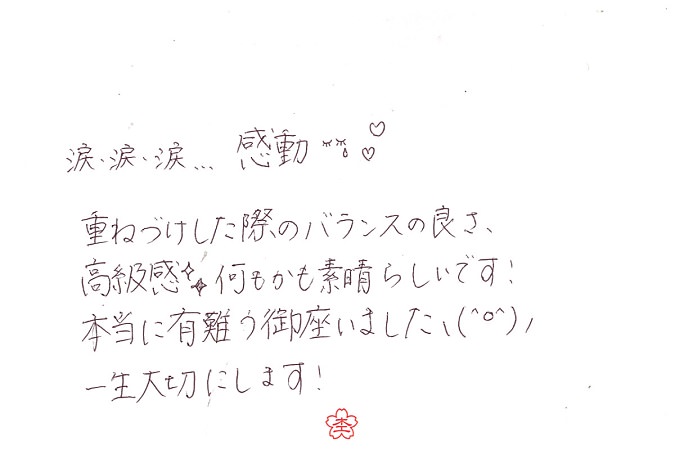 涙、涙、涙… 感動
重ねづけした際のバランスの良さ、
高級感 何もかも素晴らしいです!
本当に有難う御座いました、(^o^)ノ
一生大切にします!